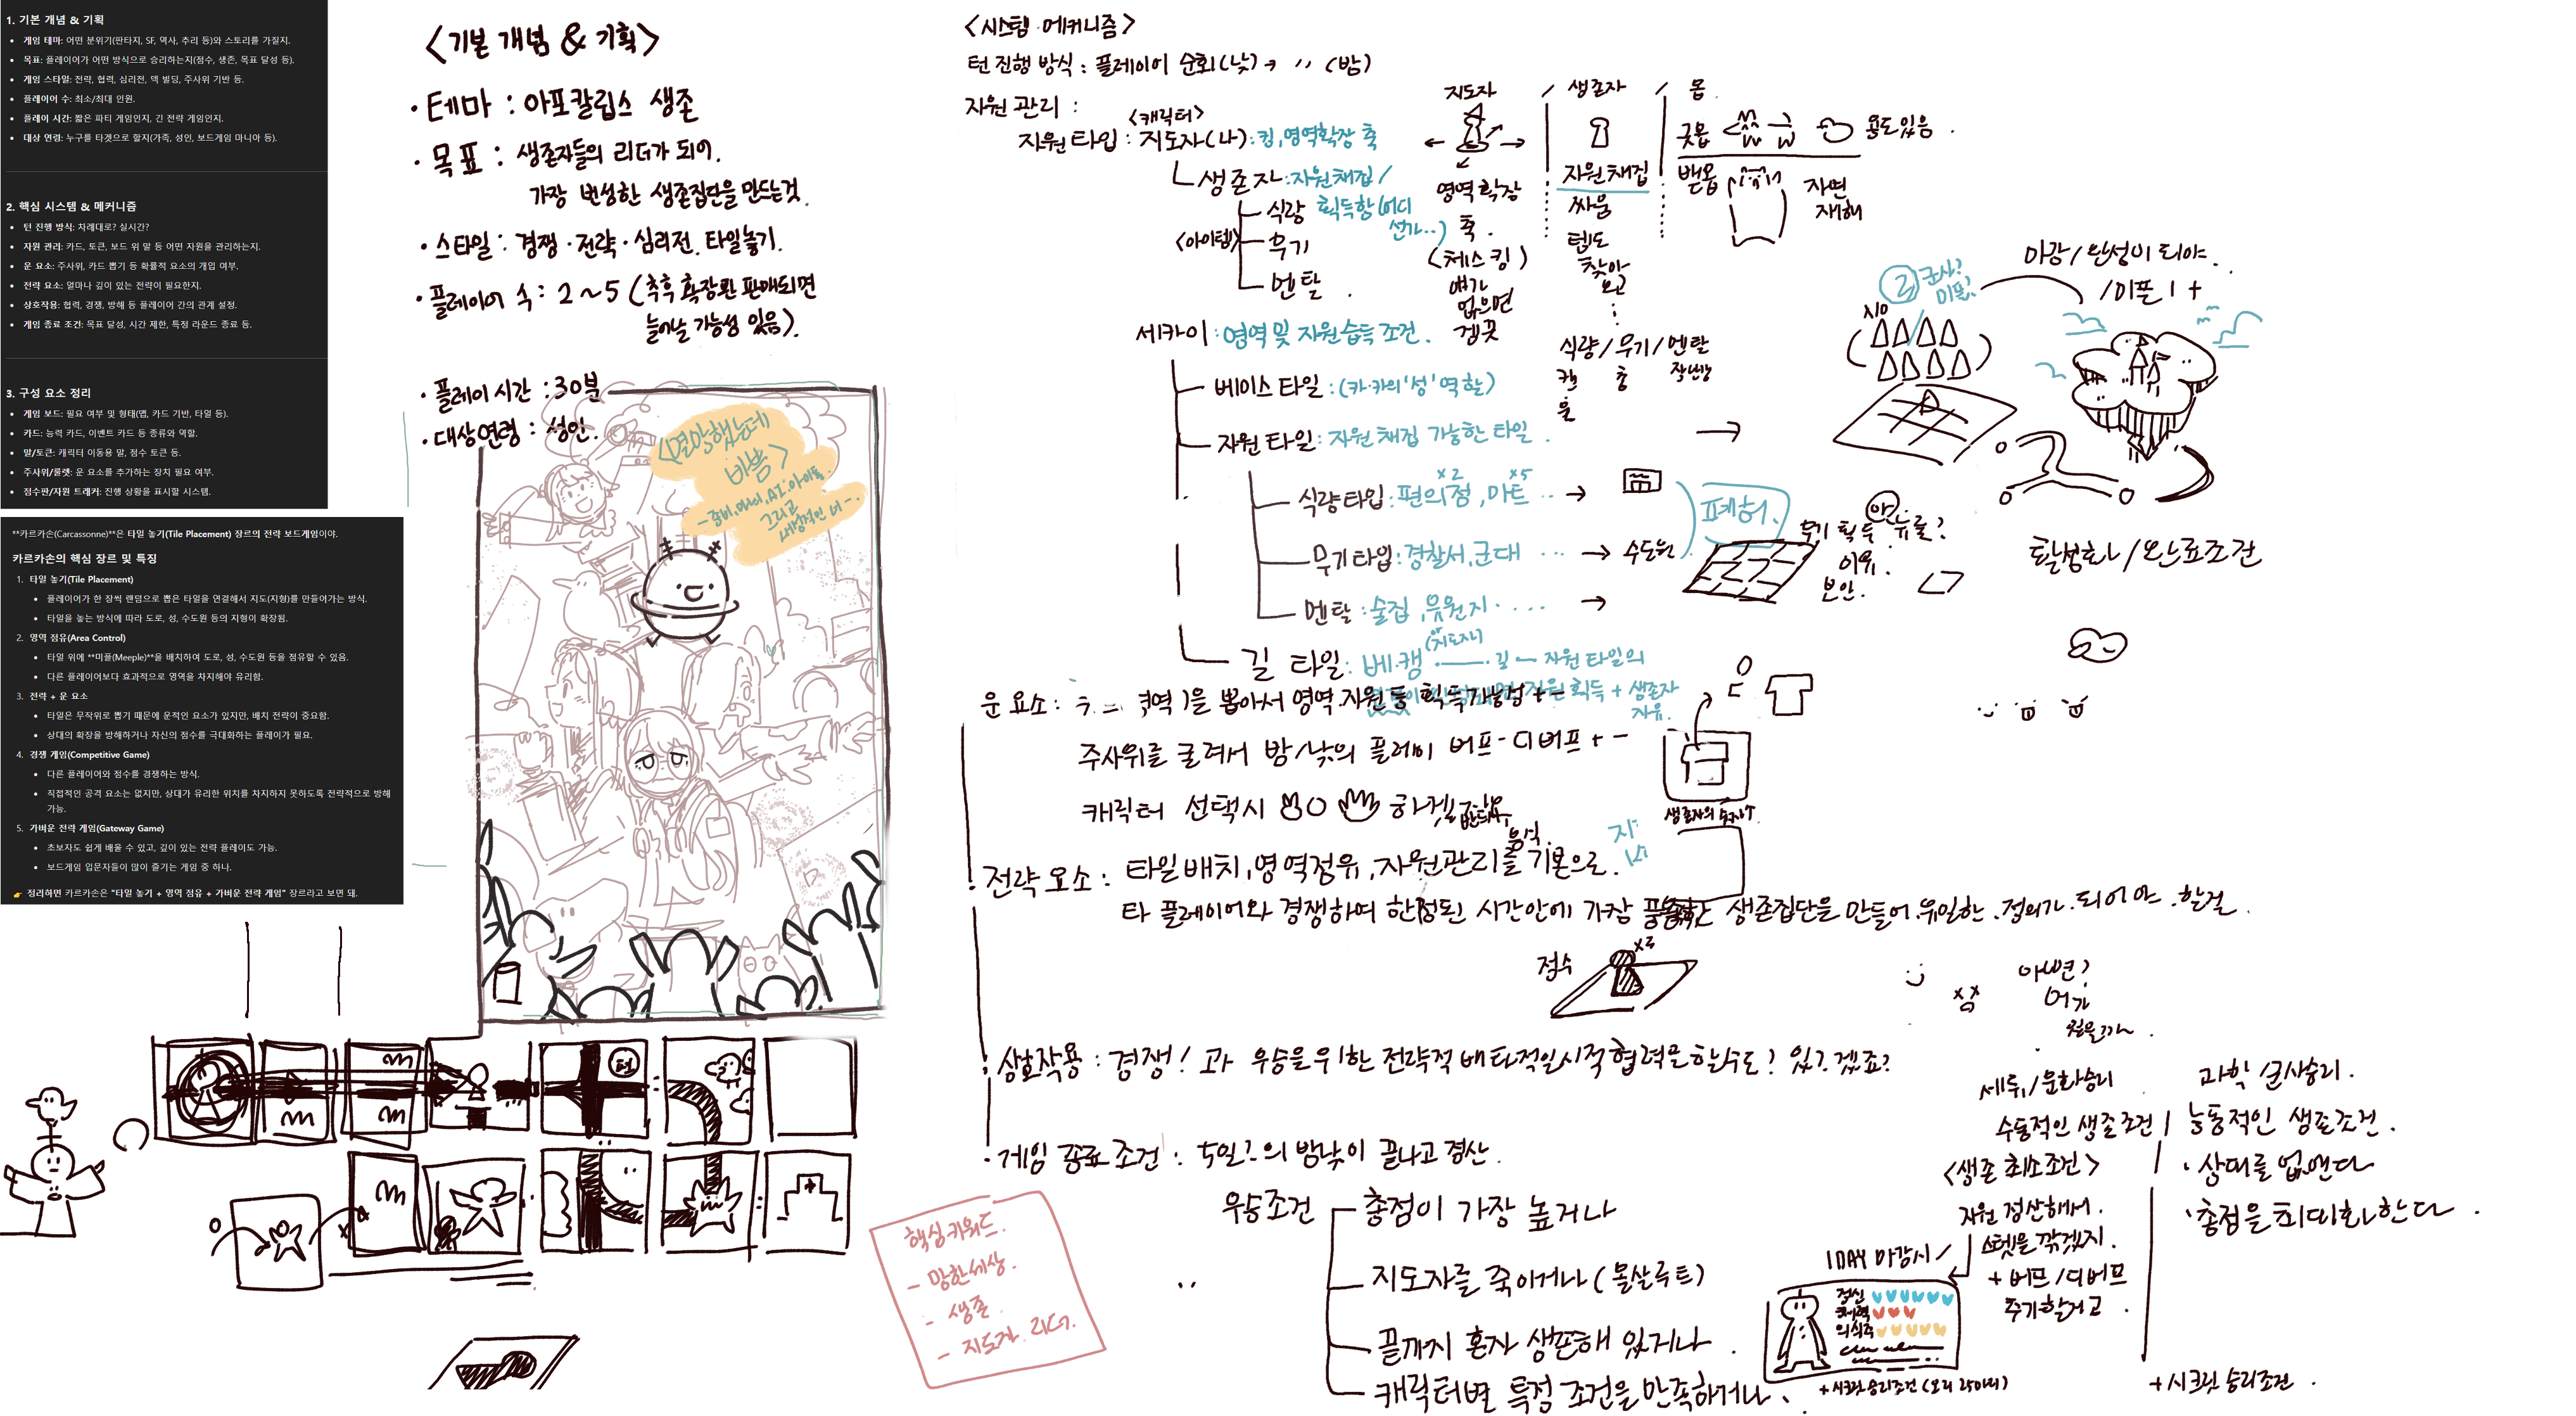 1. 기본 개념 & 기획
• 게임 테마: 어떤 분위기(판타지, SF, 역사, 추리 등)와 스토리를 가질지.
• 목표: 플레이어가 어떤 방식으로 승리하는지(점수, 생존, 목표 달성 등).
• 게임 스타일: 전략, 협력, 심리전, 덱 빌딩, 주사위 기반 등.
• 플레이어 수: 최소/최대 인원.
• 플레이 시간: 짧은 파티 게임인지, 긴 전략 게임인지.
• 대상 연령: 누구를 타겟으로 할지(가족, 성인, 보드게임 마니아 등).
2. 핵심 시스템 & 메커니즘
• 턴 진행 방식: 차례대로? 실시간?
• 자원 관리: 카드, 토큰, 보드 위 말 등 어떤 자원을 관리하는지.
• 운 요소: 주사위, 카드 뽑기 등 확률적 요소의 개입 여부.
• 전략 요소: 얼마나 깊이 있는 전략이 필요한지.
• 상호작용: 협력, 경쟁, 방해 등 플레이어 간의 관계 설정.
• 게임 종료 조건: 목표 달성, 시간 제한, 특정 라운드 종료 등.
3. 구성 요소 정리
• 게임 보드: 필요 여부 및 형태(맵, 카드 기반, 타일 등).
• 카드: 능력 카드, 이벤트 카드 등 종류와 역할.
• 말/토큰: 캐릭터 이동용 말, 점수 토큰 등.
• 주사위/룰렛: 운 요소를 추가하는 장치 필요 여부.
• 점수판/자원 트래커: 진행 상황을 표시할 시스템.
**카르카손(Carcassonne)**은 타일 놓기(Tile Placement) 장르의 전략 보드게임이야.
카르카손의 핵심 장르 및 특징
1. 타일 놓기(Tile Placement)
• 플레이어가 한 장씩 랜덤으로 뽑은 타일을 연결해서 지도(지형)를 만들어가는 방식.
• 타일을 놓는 방식에 따라 도로, 성, 수도원 등의 지형이 확장됨.
2. 영역 점유(Area Control)
• 타일 위에 **미플(Meeple)**을 배치하여 도로, 성, 수도원 등을 점유할 수 있음.
• 다른 플레이어보다 효과적으로 영역을 차지해야 유리함.
3. 전략 + 운 요소
• 타일은 무작위로 뽑기 때문에 운적인 요소가 있지만, 배치 전략이 중요함.
• 상대의 확장을 방해하거나 자신의 점수를 극대화하는 플레이가 필요.
4. 경쟁 게임(Competitive Game)
• 다른 플레이어와 점수를 경쟁하는 방식.
• 직접적인 공격 요소는 없지만, 상대가 유리한 위치를 차지하지 못하도록 전략적으로 방해
가능.
5. 가벼운 전략 게임(Gateway Game)
• 초보자도 쉽게 배울 수 있고, 깊이 있는 전략 플레이도 가능.
• 보드게임 입문자들이 많이 즐기는 게임 중 하나.
👉 정리하면 카르카손은 "타일 놓기 + 영역 점유 + 가벼운 전략 게임" 장르라고 보면 돼.
<기본 개념 & 기획>
• 테마 : 아포칼립스 생존
• 목표 : 생존자들의 리더가 되어.
가장 번성한 생존집단을 만드는것.
• 스타일 : 경쟁·전략·심리전. 타일놓기.
• 플레이어 수 : 2~5 (추후 확장판 판매되면
늘어날 가능성 있음).
• 플레이 시간 : 30분
• 대상연령 : 성인.
<멸망했는데
비쌈>
그리고
핵심키워드.
- 망한세상.
- 생존.
- 지도자. 리더.
<시스템·메커니즘>
턴 진행 방식 : 플레이어 순회(낮) → 〃 (밤)
자원 관리 :
<캐릭터>
자원타입 : 지도자(나) : 킹, 영역확장 축
생존자 : 자원채집 /
식량
획득함 (어디
선가..)
<아이템>
무기
멘탈
지도자 / 생존자 / 몹
영역 확장
축.
(체스 킹)
얘가
없으면
겜끗
자원채집
싸움
템도
찾아
오고
굿몹
용도있음.
밷몹
자연
재해
식량 / 무기 / 멘탈
캔
총
세카이 : 영역 및 자원습득 조건.
베이스 타일 : (카·카의 '성' 역할)
자원 타일 : 자원 채집 가능한 타일.
식량타입 : 편의점, 마트 ..
x2
x5
무기타입 : 경찰서, 군대 ...
수도원
멘탈 : 술집, 유원지 ....
폐허.
길 타일 : 베·캠 —— 길 — 자원 타일의
(지도자)
자원 획득 + 생존자
자유.
마감 / 완성이 되야.
/ 미플 1 +
x10
군사?
미플?
이유.
보안.
활성화 / 완료조건
운 요소 :
을 뽑아서 영역·자원 등 획득가능성 + -
주사위를 굴려서 밤/낮의 플레이 버프-디버프 + -
캐릭터 선택시
생존자의 숫자↑
전략 요소 : 타일배치, 영역점유, 자원관리를 기본으로.
타 플레이어와 경쟁하여 한정된 시간안에 가장
생존집단을 만들어 유일한 정의가 되어야 할것.
점수
x3
상호작용 : 경쟁! 과 우승을 위한 전략적 배타적일시적 협력을 할수도? 있겠죠?
게임 종료 조건 : 5일?의 밤낮이 끝나고 정산.
우승조건
총점이 가장 높거나
지도자를 죽이거나 (몰살루트)
끝까지 혼자 생존해 있거나.
캐릭터별 특정 조건을 만족하거나.
아니면?
뭐가
있을까
세뇌 / 문화승리
과학 / 군사승리.
수동적인 생존조건 / 능동적인 생존조건.
<생존 최소조건>
자원 정산해서.
스탯을 깎겠지.
+ 버프 / 디버프
주기할거고.
• 상대를 없앤다
• 총점을 최대화한다.
1DAY 마감시 /
정신
체력
의식주
+ 시크릿 승리조건
+ 시크릿 승리조건.